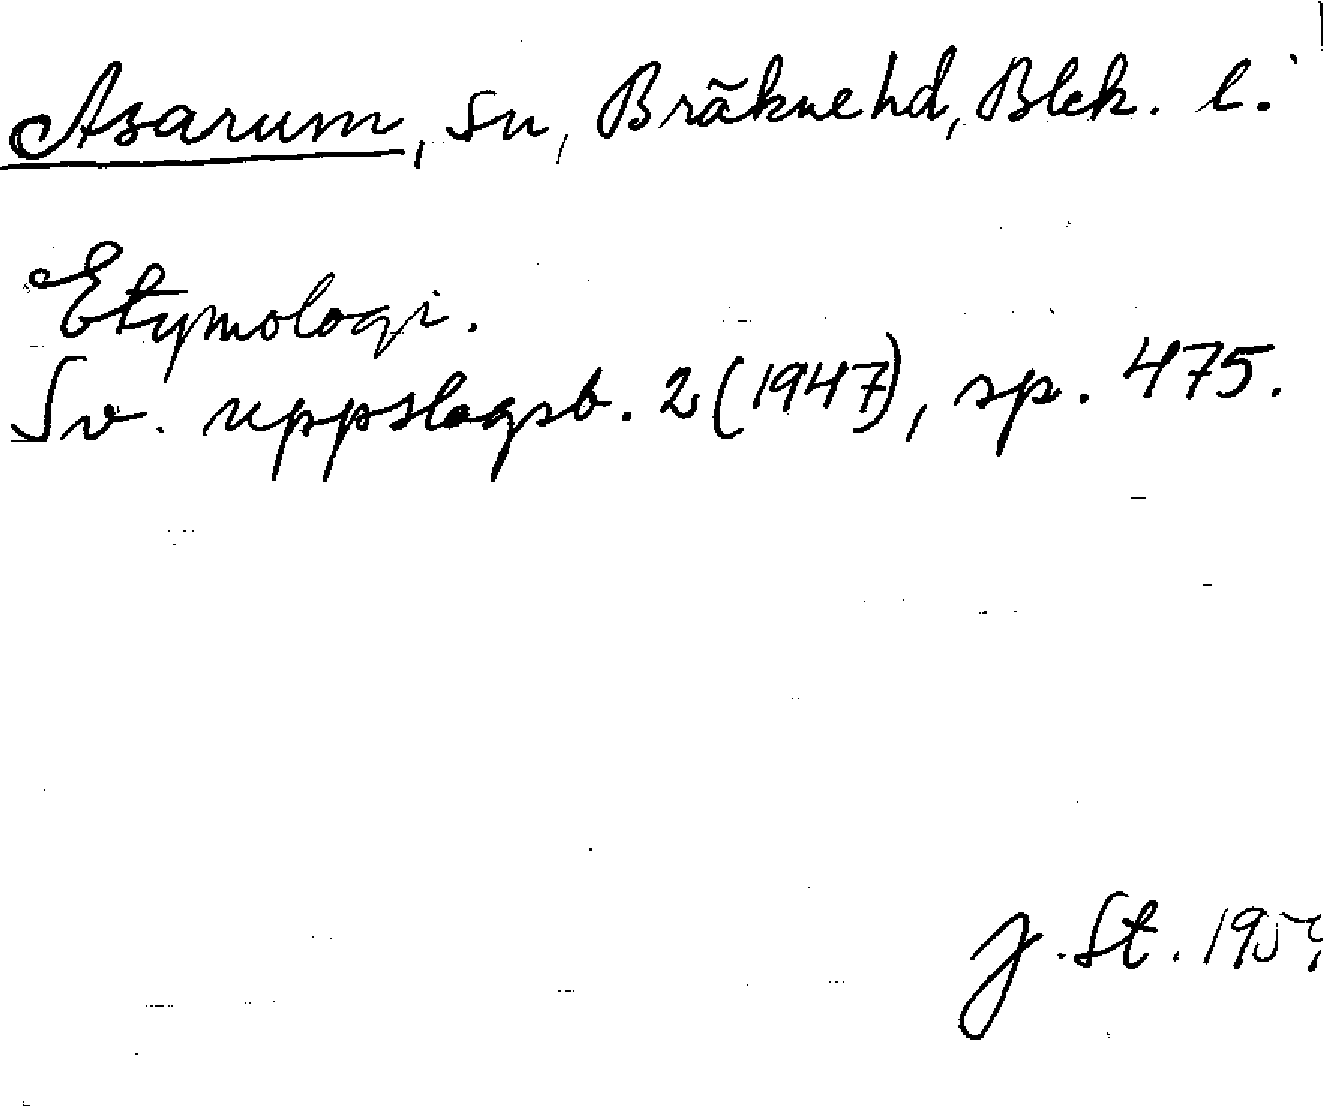 Asarum, sn, Bräknehd, Blek. l.
Etymologi.
Sv. uppslagsb. 2 (1947), sp. 475.
J. St.